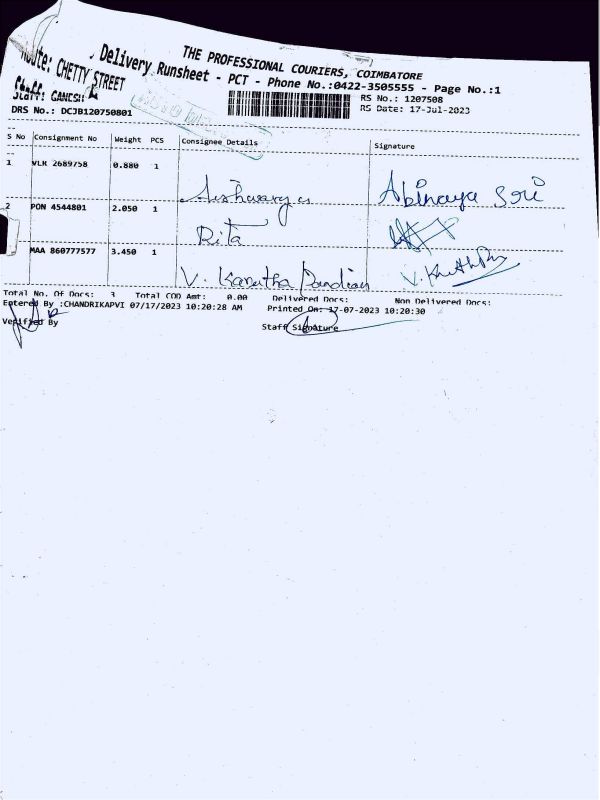 THE PROFESSIONAL COURIERS, COIMBATORE
Delivery Runsheet - PCT - Phone No.:0422-3505555 - Page No.:1
Route: CHETTY STREET
Staff: GANESH
RS No.: 1207508
RS Date: 17-Jul-2023
DRS No.: DCJB120750801
S No Consignment No Weight PCS Consignee Details Signature
1 VLK 2689758 0.880 1
Aishwarya Abinaya Sri
2 PON 4544801 2.050 1
Rita
MAA 860777577 3.450 1
V.
Total No. Of Docs: 3 Total COD Amt: 0.00 Delivered Docs: Non Delivered Docs:
Entered By :CHANDRIKAPVI 07/17/2023 10:20:28 AM Printed On: 17-07-2023 10:20:30
Verified By Staff Signature